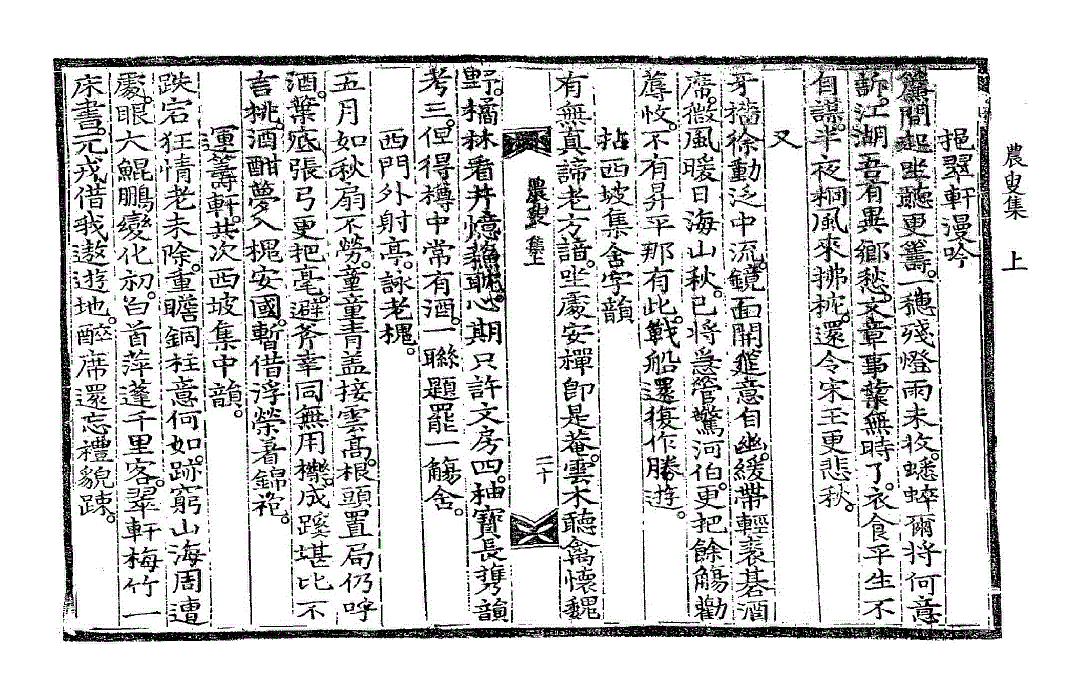 農叟集 上
挹翠軒漫吟
簾間起坐聽更籌。一穗殘燈雨未收。蟋蟀爾將何意
訴。江湖吾有異鄉愁。文章事業無時了。衣食平生不
自謀。半夜桐風來拂枕。還令宋玉更悲秋。
又
牙檣徐動泛中流。鏡面開筵意自幽。緩帶輕裘碁酒
席。微風暖日海山秋。已將急管驚河伯。更把餘觴勸
蓐收。不有昇平那有此。戰船還復作勝遊。
拈西坡集舍字韻
有無真諦老方諳。坐處安禪卽是菴。雲木聽禽懷魏
農叟集上
二十
野。橘林看井憶蘇耽。心期只許文房四。袖寶長携韻
考三。但得樽中常有酒。一聯題罷一觴含。
西門外射亭。詠老槐。
五月如秋扇不勞。童童靑盖接雲高。根頭置局仍呼
酒。葉底張弓更把毫。避斧幸同無用櫟。成蹊堪比不
言桃。酒酣夢入槐安國。暫借浮榮着錦袍。
運籌軒。共次西坡集中韻。
跌宕狂情老未除。重瞻銅柱意何如。跡窮山海周遭
處。眼大鯤鵬變化初。白首萍蓬千里客。翠軒梅竹一
床書。元戎借我遨遊地。醉席還忘禮貌踈。